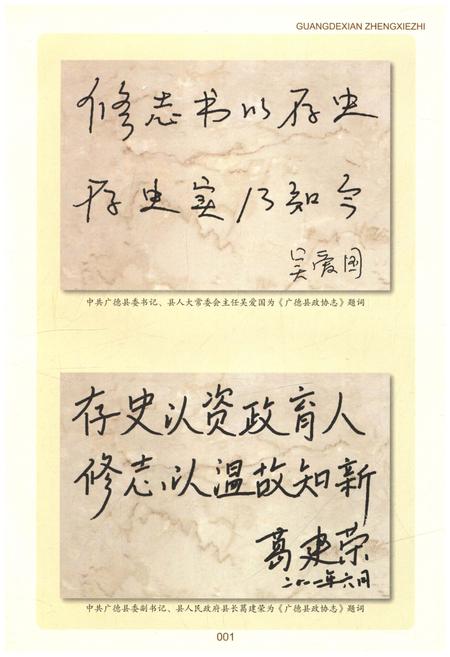 GUANGDEXIAN ZHENGXIEZHI
修志书以存史
存史实乃知今
吴爱国
中共广德县委书记、县人大常委会主任吴爱国为《广德县政协志》题词
存史以资政育人
修志以温故知新
葛建荣
二〇一一年六月
中共广德县委副书记、县人民政府县长葛建荣为《广德县政协志》题词
001